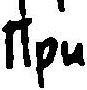 При